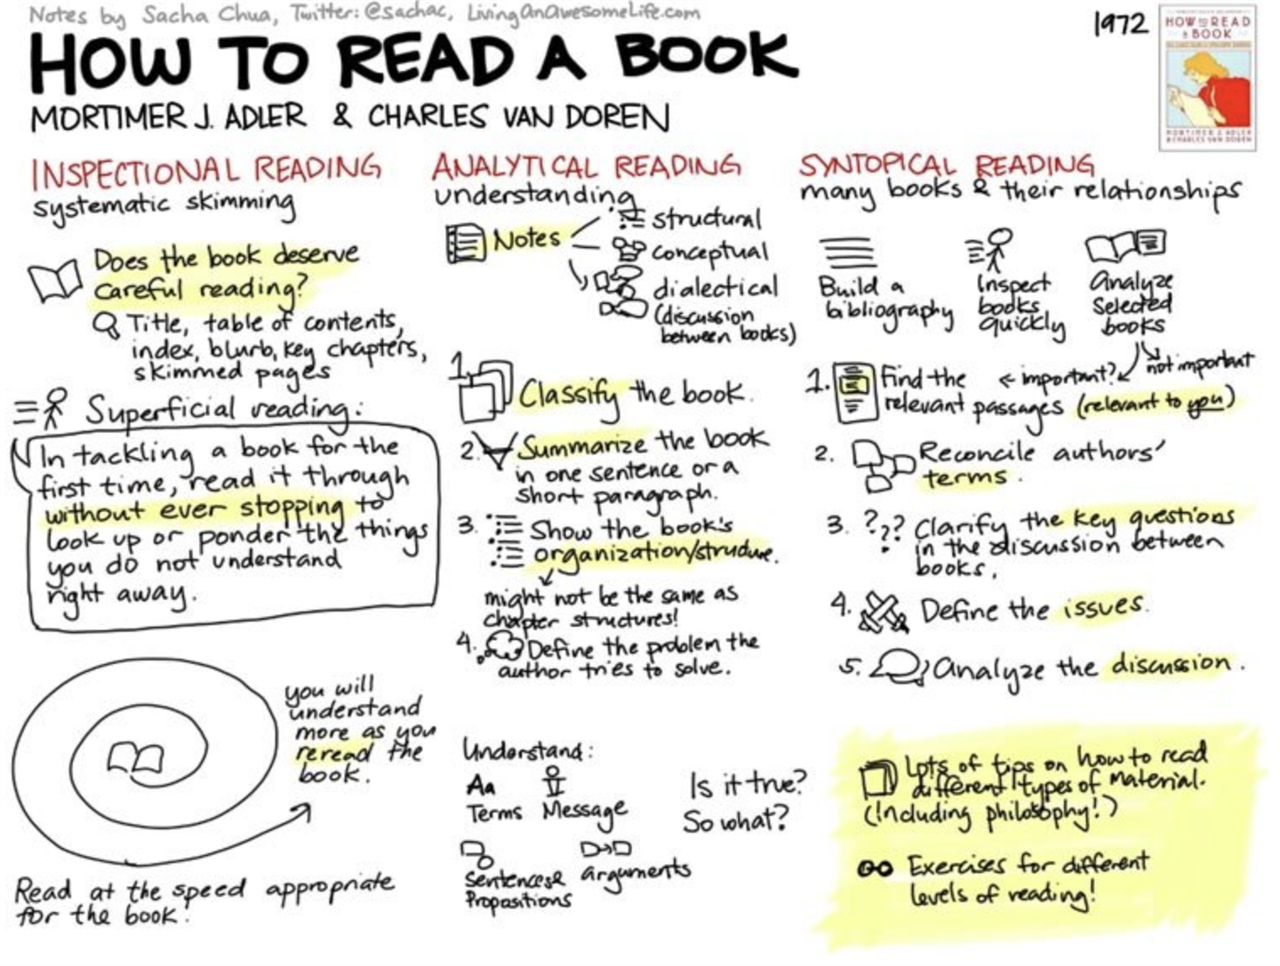 Notes by Sacha Chua, Twitter: @sachac, LivingAnAwesomeLife.com
HOW TO READ A BOOK
MORTIMER J. ADLER & CHARLES VAN DOREN
1972
HOW TO READ
A BOOK
MORTIMER J. ADLER
& CHARLES VAN DOREN
INSPECTIONAL READING
systematic skimming
Does the book deserve
careful reading?
Title, table of contents,
index, blurb, key chapters,
skimmed pages
Superficial reading:
In tackling a book for the
first time, read it through
without ever stopping to
look up or ponder the things
you do not understand
right away.
you will
understand
more as you
reread the
book.
Read at the speed appropriate
for the book!
ANALYTICAL READING
understanding
Notes
structural
conceptual
dialectical
(discussion
between books)
1. Classify the book.
2. Summarize the book
in one sentence or a
short paragraph.
3. Show the book's
organization/structure.
might not be the same as
chapter structures!
4. Define the problem the
author tries to solve.
Understand:
Aa
Terms Message
Sentences &
Propositions
arguments
Is it true?
So what?
SYNTOPICAL READING
many books & their relationships
Build a
bibliography
Inspect
books
quickly
Analyze
selected
books
not important
important?
1. Find the
relevant passages (relevant to you)
2. Reconcile authors'
terms.
3. ??? Clarify the key questions
in the discussion between
books.
4. Define the issues.
5. Analyze the discussion.
Lots of tips on how to read
different types of material.
(Including philosophy!)
Exercises for different
levels of reading!